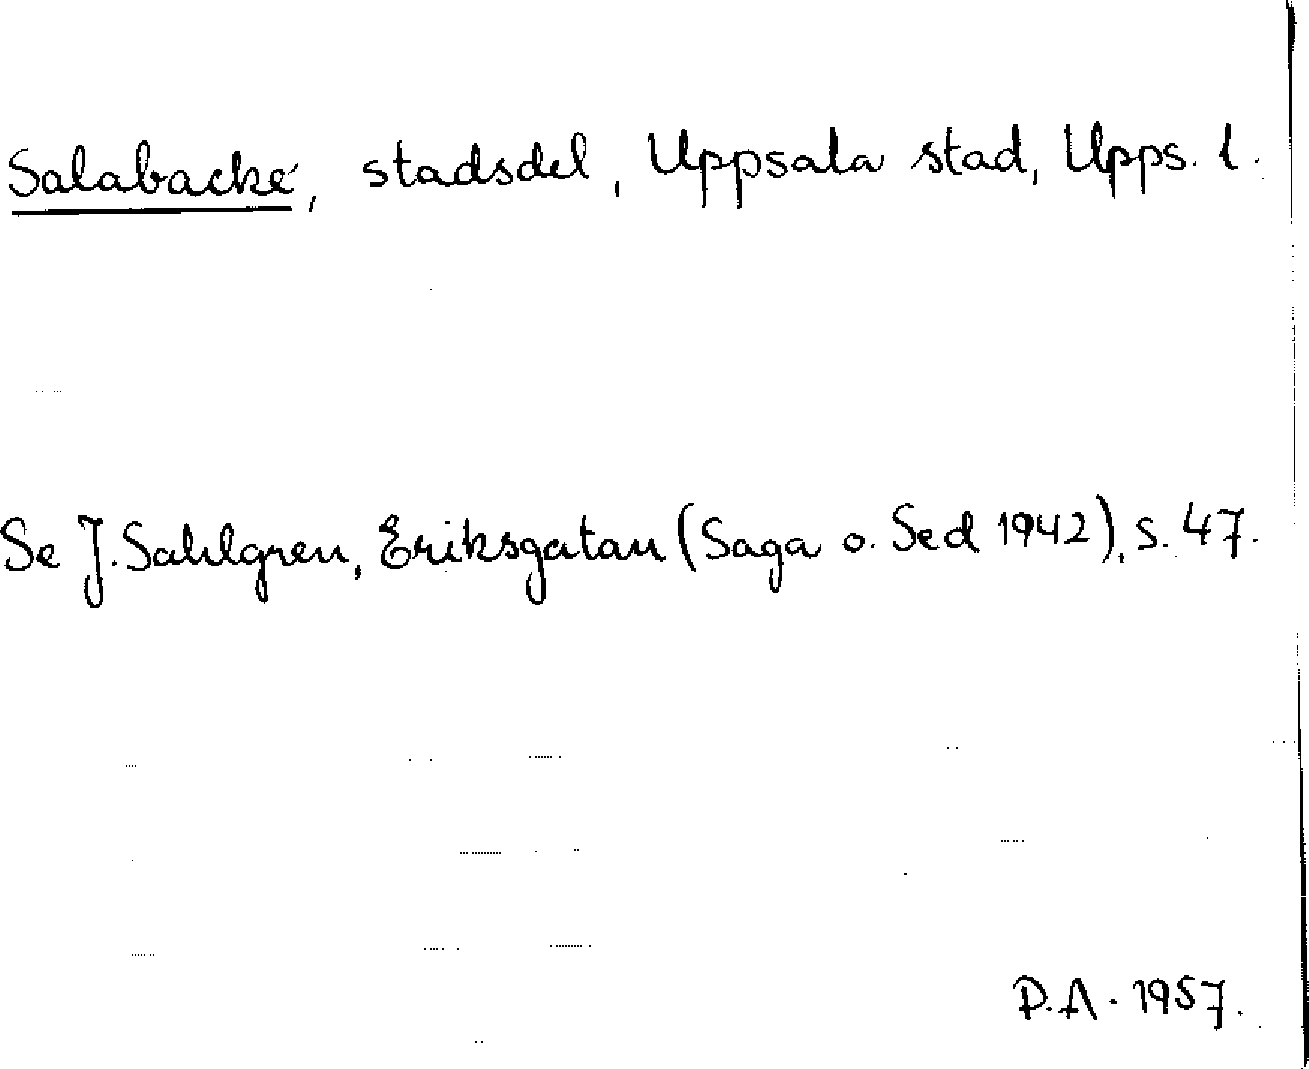 Salabacke, stadsdel, Uppsala stad, Upps. l.
Se J. Sahlgren, Eriksgatan (Saga o. Sed 1942), s. 47.
D.A. 1957.